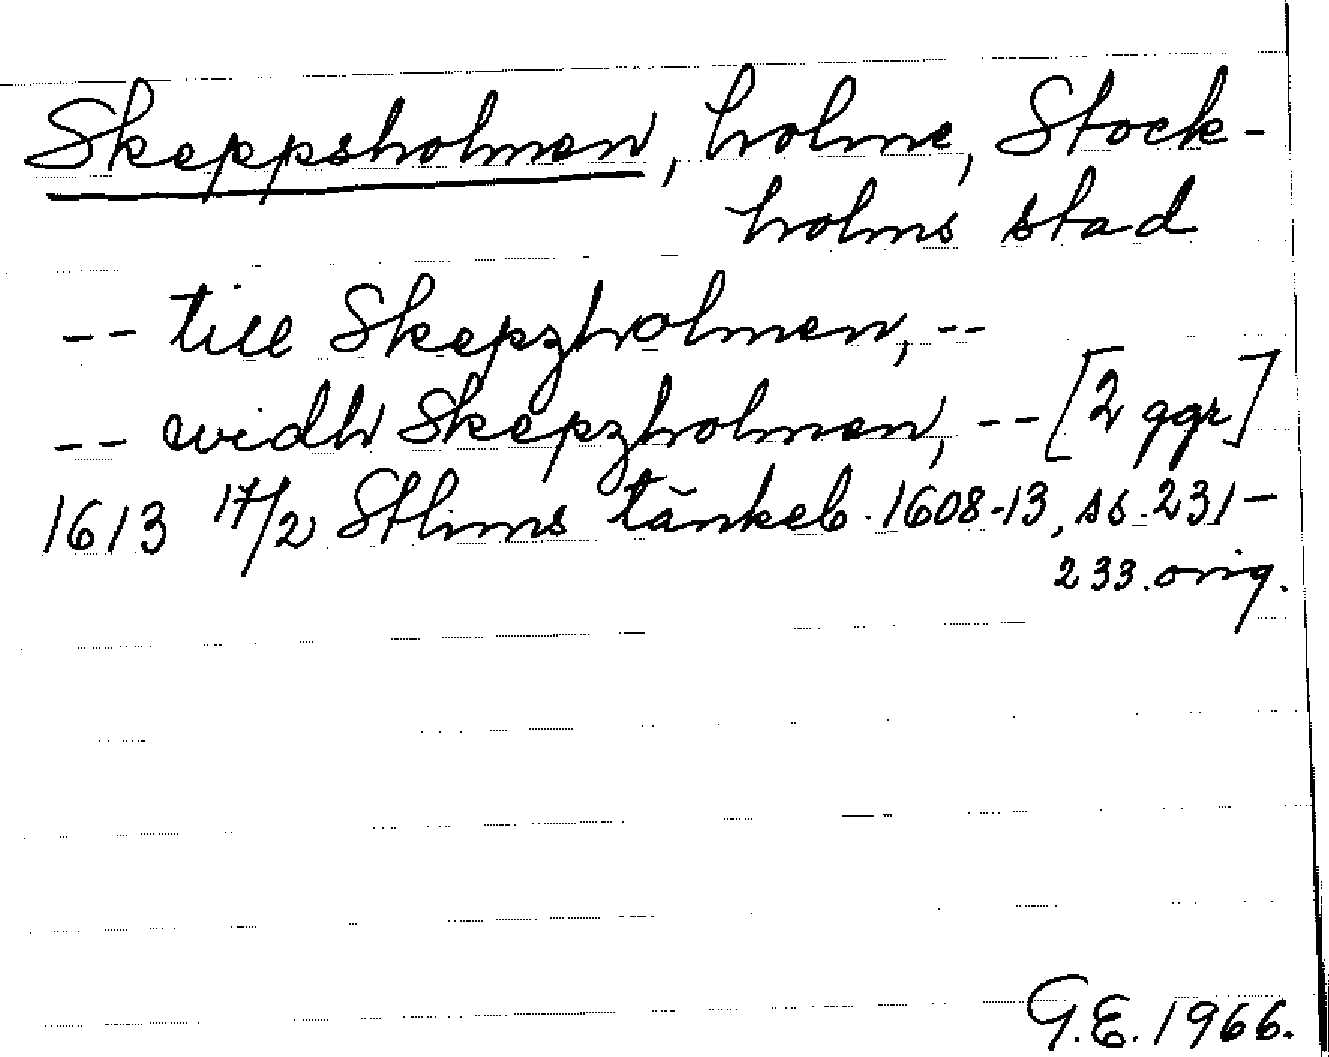 Skeppsholmen, holme, Stock-
holms stad
-- till Skepzholmen, --
-- widh Skepzholmen, -- [2 ggr]
1613 17/2 Sthms tänkeb. 1608-13, ss. 231-
233. orig.
G.E. 1966.